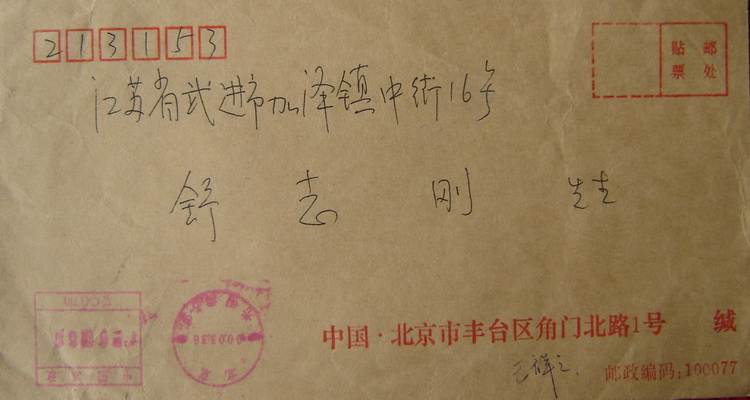 213153
贴 邮
票 处
江苏省武进市加泽镇中街16号
舒志刚 先生
中国·北京市丰台区角门北路1号 缄
邮政编码:100077